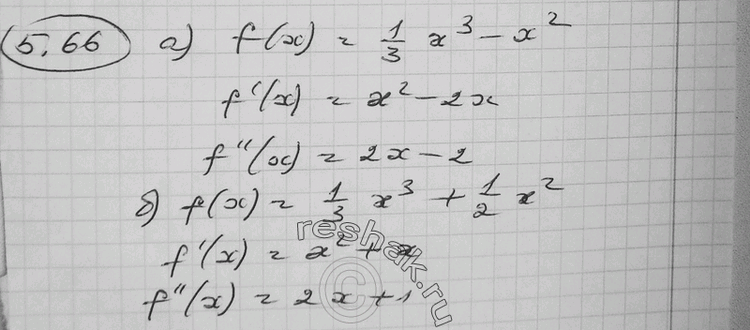 5.66 а) f(x) = 1/3 x³ − x²
f'(x) = x² − 2x
f''(x) = 2x − 2
б) f(x) = 1/3 x³ + 1/2 x²
f'(x) = x² + x
f''(x) = 2x + 1
reshak.ru
©